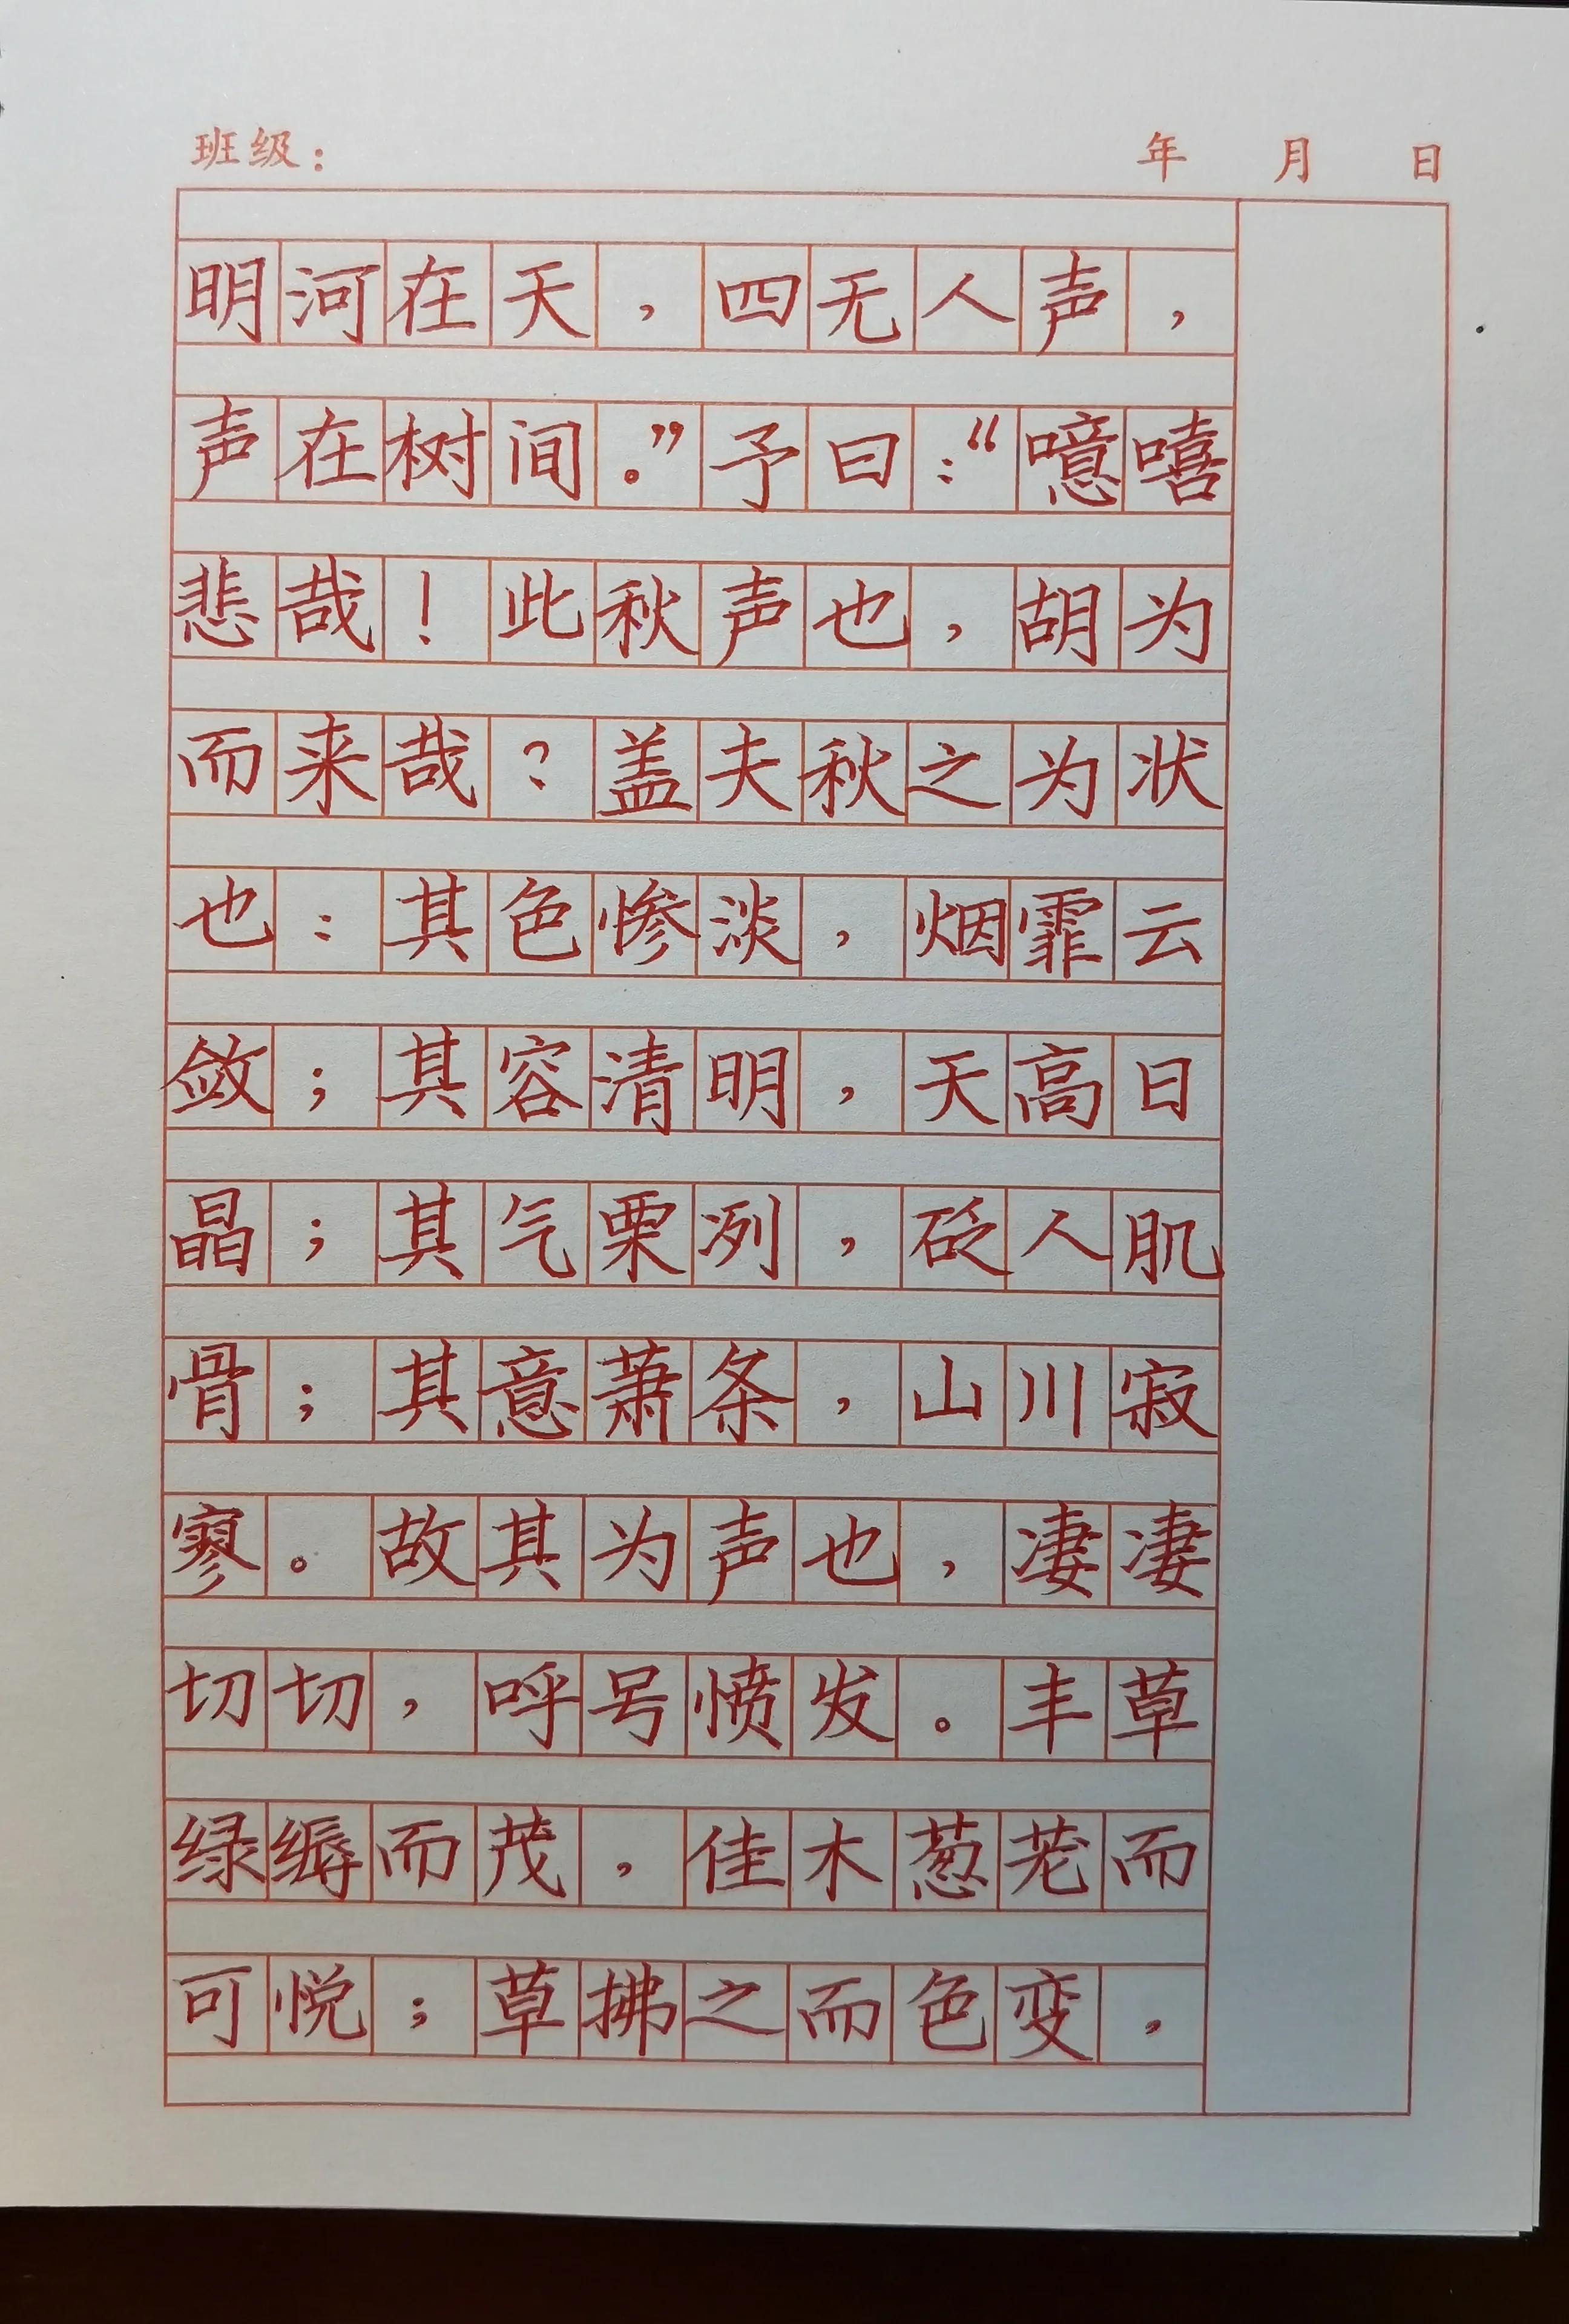 班级： 年 月 日
明河在天，四无人声，
声在树间。”予曰：“噫嘻
悲哉！此秋声也，胡为
而来哉？盖夫秋之为状
也：其色惨淡，烟霏云
敛；其容清明，天高日
晶；其气栗冽，砭人肌
骨；其意萧条，山川寂
寥。故其为声也，凄凄
切切，呼号愤发。丰草
绿缛而茂，佳木葱茏而
可悦；草拂之而色变，